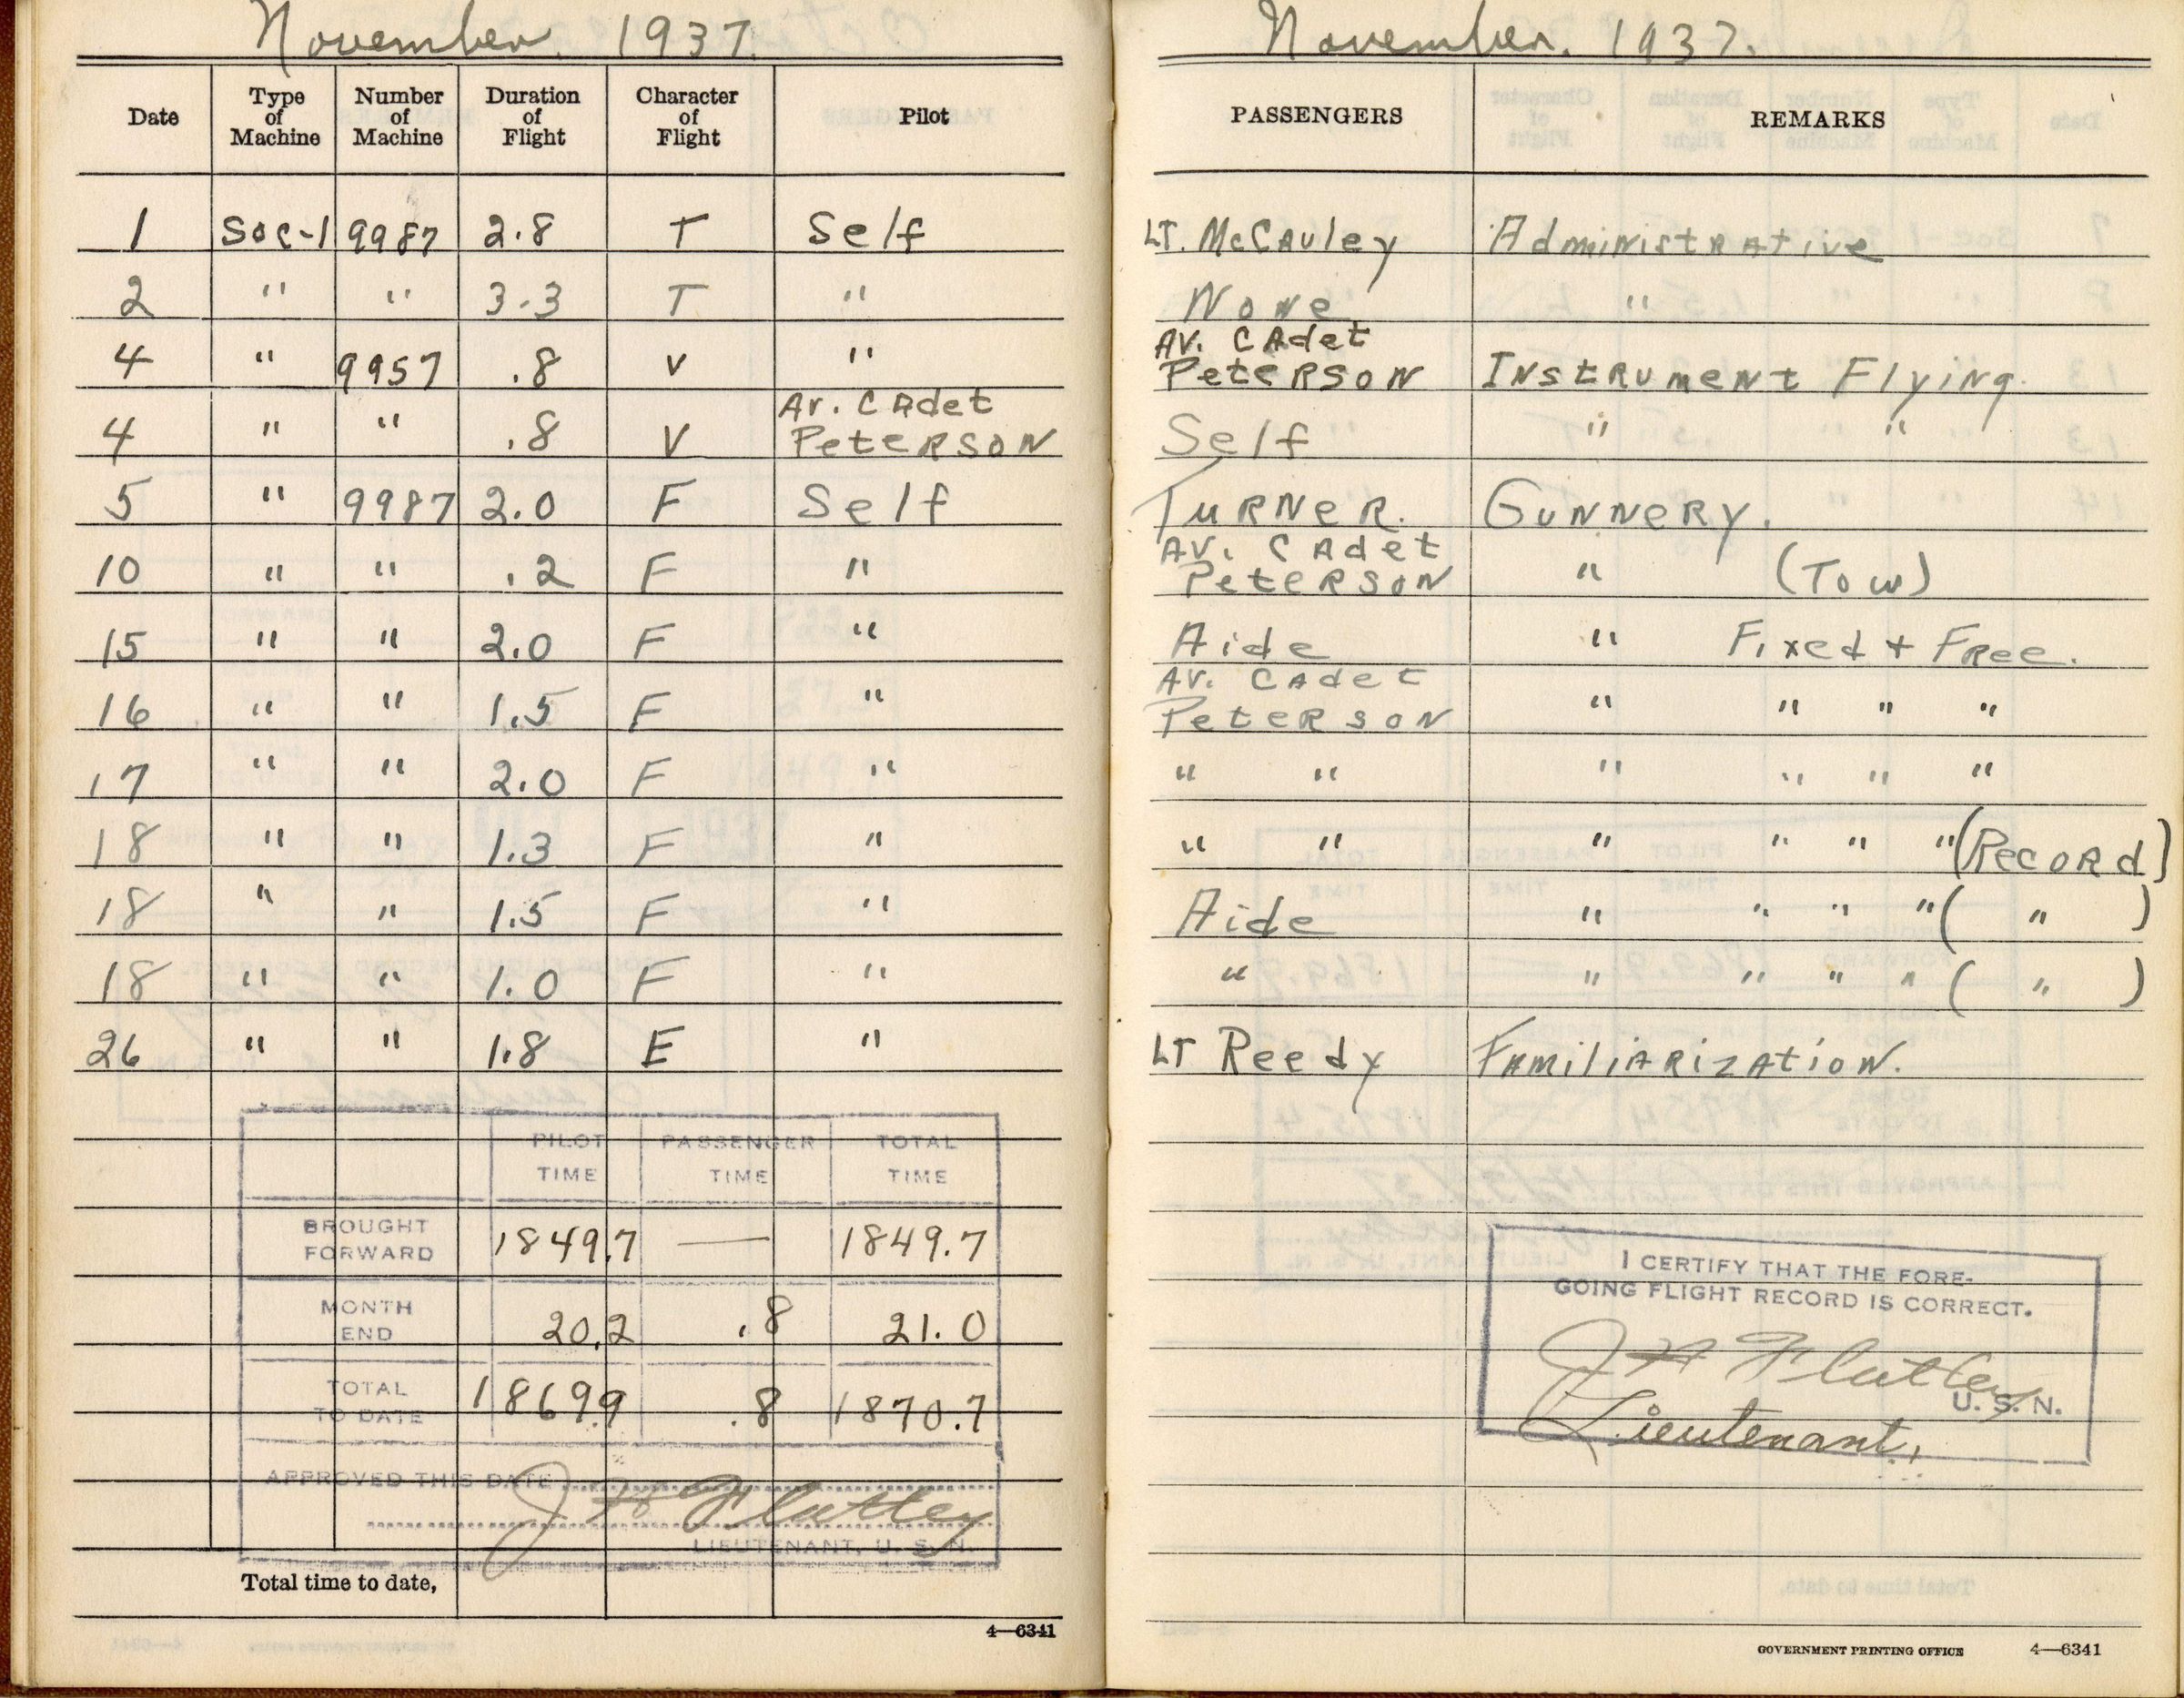 November. 1937.
Date Type of Machine Number of Machine Duration of Flight Character of Flight Pilot
1 SOC-1 9987 2.8 T Self
2 " " 3.3 T "
4 " 9957 .8 V "
4 " " .8 V Av. Cadet Peterson
5 " 9987 2.0 F Self
10 " " .2 F "
15 " " 2.0 F "
16 " " 1.5 F "
17 " " 2.0 F "
18 " " 1.3 F "
18 " " 1.5 F "
18 " " 1.0 F "
26 " " 1.8 E "
PILOT TIME PASSENGER TIME TOTAL TIME
BROUGHT FORWARD 1849.7 — 1849.7
MONTH END 20.2 .8 21.0
TOTAL TO DATE 1869.9 .8 1870.7
APPROVED THIS DATE
J H Flatley
LIEUTENANT, U. S. N.
Total time to date,
4—6341
November. 1937.
PASSENGERS REMARKS
LT. McCauley Administrative
None "
Av. Cadet
Peterson Instrument Flying.
Self " "
Turner. Gunnery.
Av. Cadet
Peterson " (Tow)
Aide " Fixed + Free.
Av. Cadet
Peterson " " " "
" " " " " "
" " " " " " (Record)
Aide " " " " ( " )
" " " " " ( " )
LT Reedy Familiarization.
I CERTIFY THAT THE FORE-
GOING FLIGHT RECORD IS CORRECT.
J H Flatley
U. S. N.
Lieutenant,
GOVERNMENT PRINTING OFFICE 4—6341